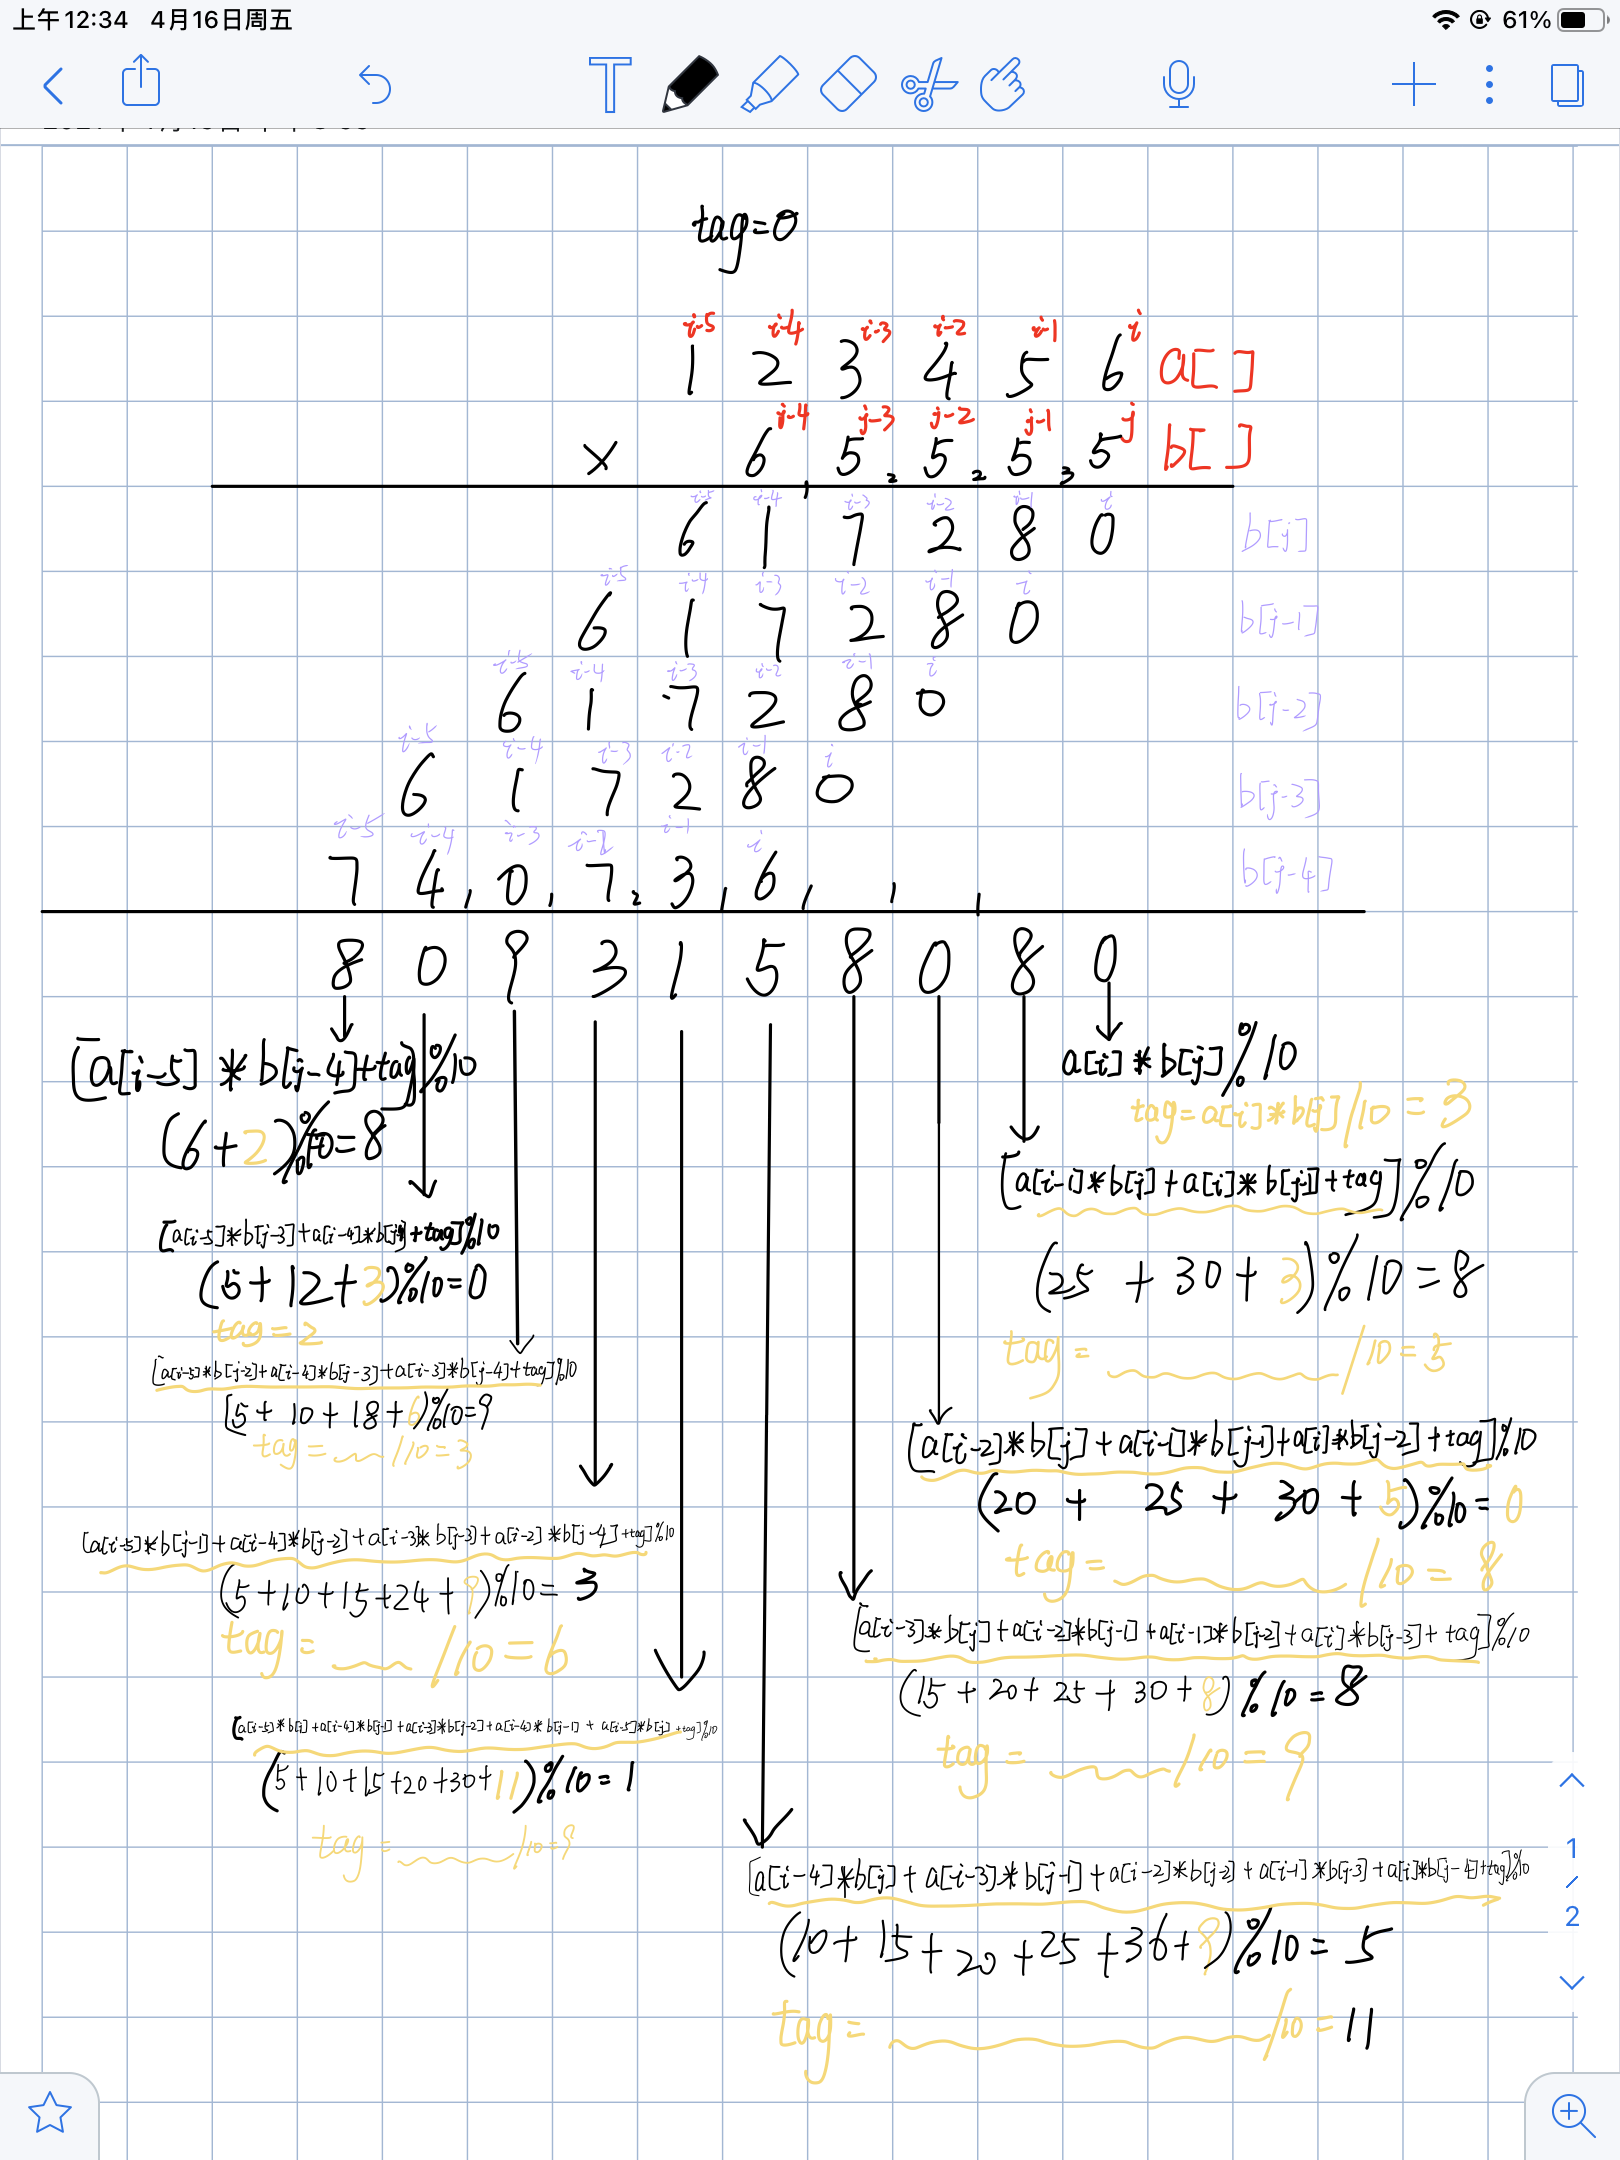 上午12:34 4月16日周五 61%
T
tag=0
i-5 i-4 i-3 i-2 i-1 i
1 2 3 4 5 6 a[ ]
j-4 j-3 j-2 j-1 j
× 6 5 5 5 5 b[ ]
1 2 2 3
i-5 i-4 i-3 i-2 i-1 i
6 1 7 2 8 0 b[j]
i-5 i-4 i-3 i-2 i-1 i
6 1 7 2 8 0 b[j-1]
i-5 i-4 i-3 i-2 i-1 i
6 1 7 2 8 0 b[j-2]
i-5 i-4 i-3 i-2 i-1 i
6 1 7 2 8 0 b[j-3]
i-5 i-4 i-3 i-2 i-1 i
7 4 0 7 3 6 b[j-4]
1 1 2 1 1 1 1
8 0 9 3 1 5 8 0 8 0
[a[i-5] * b[j-4]+tag]%10
(6+2)%10=8
a[i]*b[j]%10
tag=a[i]*b[j]/10=3
[a[i-1]*b[j]+a[i]*b[j-1]+tag]%10
(25 + 30+3)%10=8
tag= /10=5
[a[i-5]*b[j-3]+a[i-4]*b[j-4]+tag]%10
(5+12+3)%10=0
tag=2
[a[i-5]*b[j-2]+a[i-4]*b[j-3]+a[i-3]*b[j-4]+tag]%10
[5+ 10+18+6)%10=9
tag= /10=3
[a[i-2]*b[j]+a[i-1]*b[j-1]+a[i]*b[j-2]+tag]%10
(20 + 25 + 30 + 5)%10=0
tag= /10=8
[a[i-5]*b[j-1]+a[i-4]*b[j-2]+a[i-3]*b[j-3]+a[i-2]*b[j-4]+tag]%10
(5+10+15+24+9)%10=3
tag= /10=6
[a[i-3]*b[j]+a[i-2]*b[j-1]+a[i-1]*b[j-2]+a[i]*b[j-3]+tag]%10
(15+20+25+30+8)%10=8
tag= /10=9
[a[i-5]*b[j]+a[i-4]*b[j-1]+a[i-3]*b[j-2]+a[i-4]*b[j-1]+a[i-5]*b[j]+tag]%10
(5+10+15+20+30+11)%10=1
tag= /10=9
[a[i-4]*b[j]+a[i-3]*b[j-1]+a[i-2]*b[j-2]+a[i-1]*b[j-3]+a[i]*b[j-4]+tag]%10
(10+15+20+25+36+9)%10=5
tag= /10=11
1
/
2